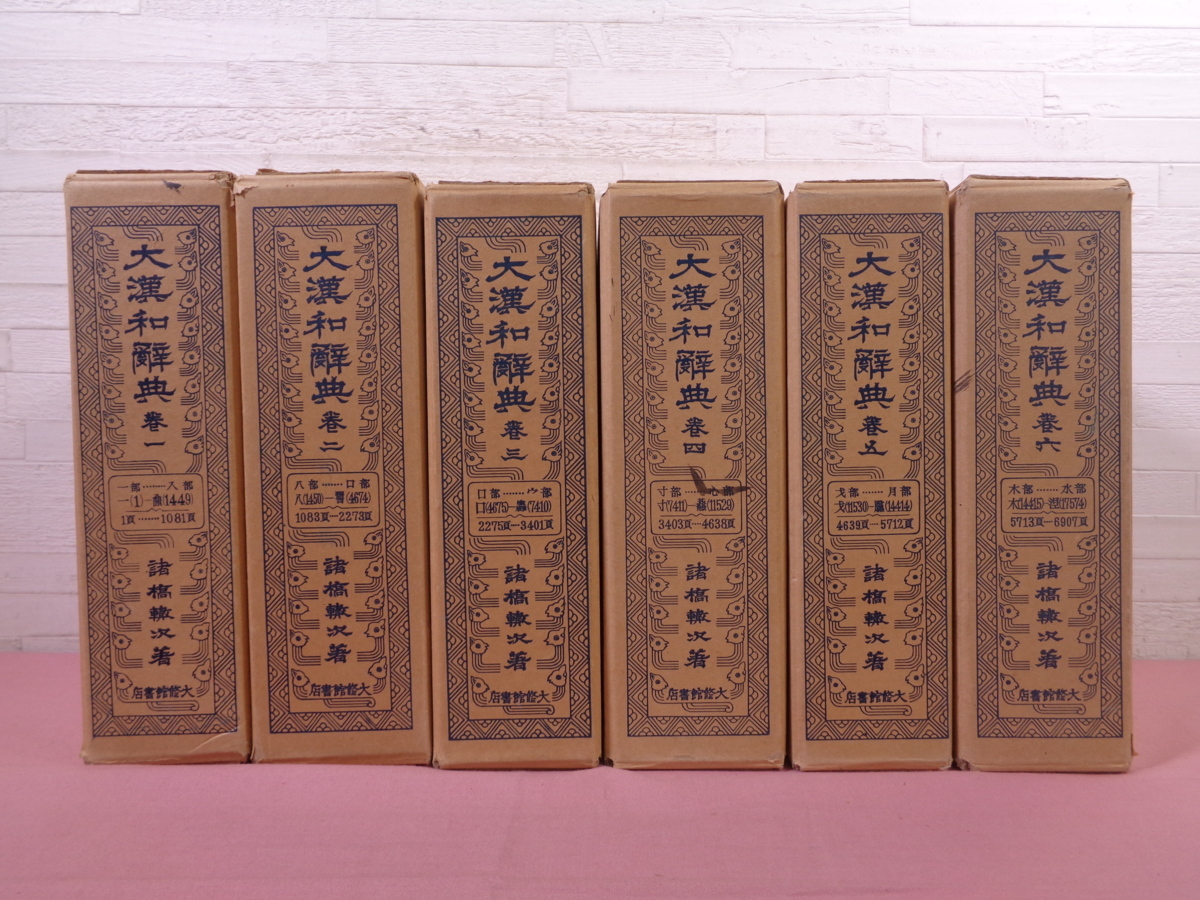 大漢和辭典 卷一
一部……入部
一(1)—(1449)
1頁……1081頁
諸橋轍次著
大修館書店
大漢和辭典 卷二
八部……口部
八(1450)—(4674)
1083頁…2273頁
諸橋轍次著
大修館書店
大漢和辭典 卷三
囗部……宀部
囗(4675)—(7410)
2275頁—3401頁
諸橋轍次著
大修館書店
大漢和辭典 卷四
寸部……心部
寸(7411)—(11529)
3403頁…4638頁
諸橋轍次著
大修館書店
大漢和辭典 卷五
戈部……月部
戈(11530)—(14414)
4639頁…5712頁
諸橋轍次著
大修館書店
大漢和辭典 卷六
木部……水部
木(14415)—(17574)
5713頁…6907頁
諸橋轍次著
大修館書店